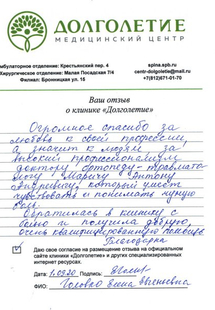 ДОЛГОЛЕТИЕ
МЕДИЦИНСКИЙ ЦЕНТР
Амбулаторное отделение: Крестьянский пер. 4
Хирургическое отделение: Малая Посадская 7/4
Филиал: Бронницкая ул. 15
spina.spb.ru
centr-dolgoletie@mail.ru
+7(812)671-01-70
Ваш отзыв
о клинике «Долголетие»
Огромное спасибо за
любовь к своей профессии,
а значит к людям за
высокий профессионализм
доктору ортопеду-травмато-
логу Антону
Андреевичу, который умеет
чувствовать и понимать чужую
боль.
Обратилась в клинику с
болью и получила добрую,
очень квалифицированную помощь
Благодарю
Даю свое согласие на размещение отзыва на официальном
сайте клиники «Долголетие» и других специализированных
интернет ресурсах.
Дата: Подпись:
ФИО: Елена Евгеньевна